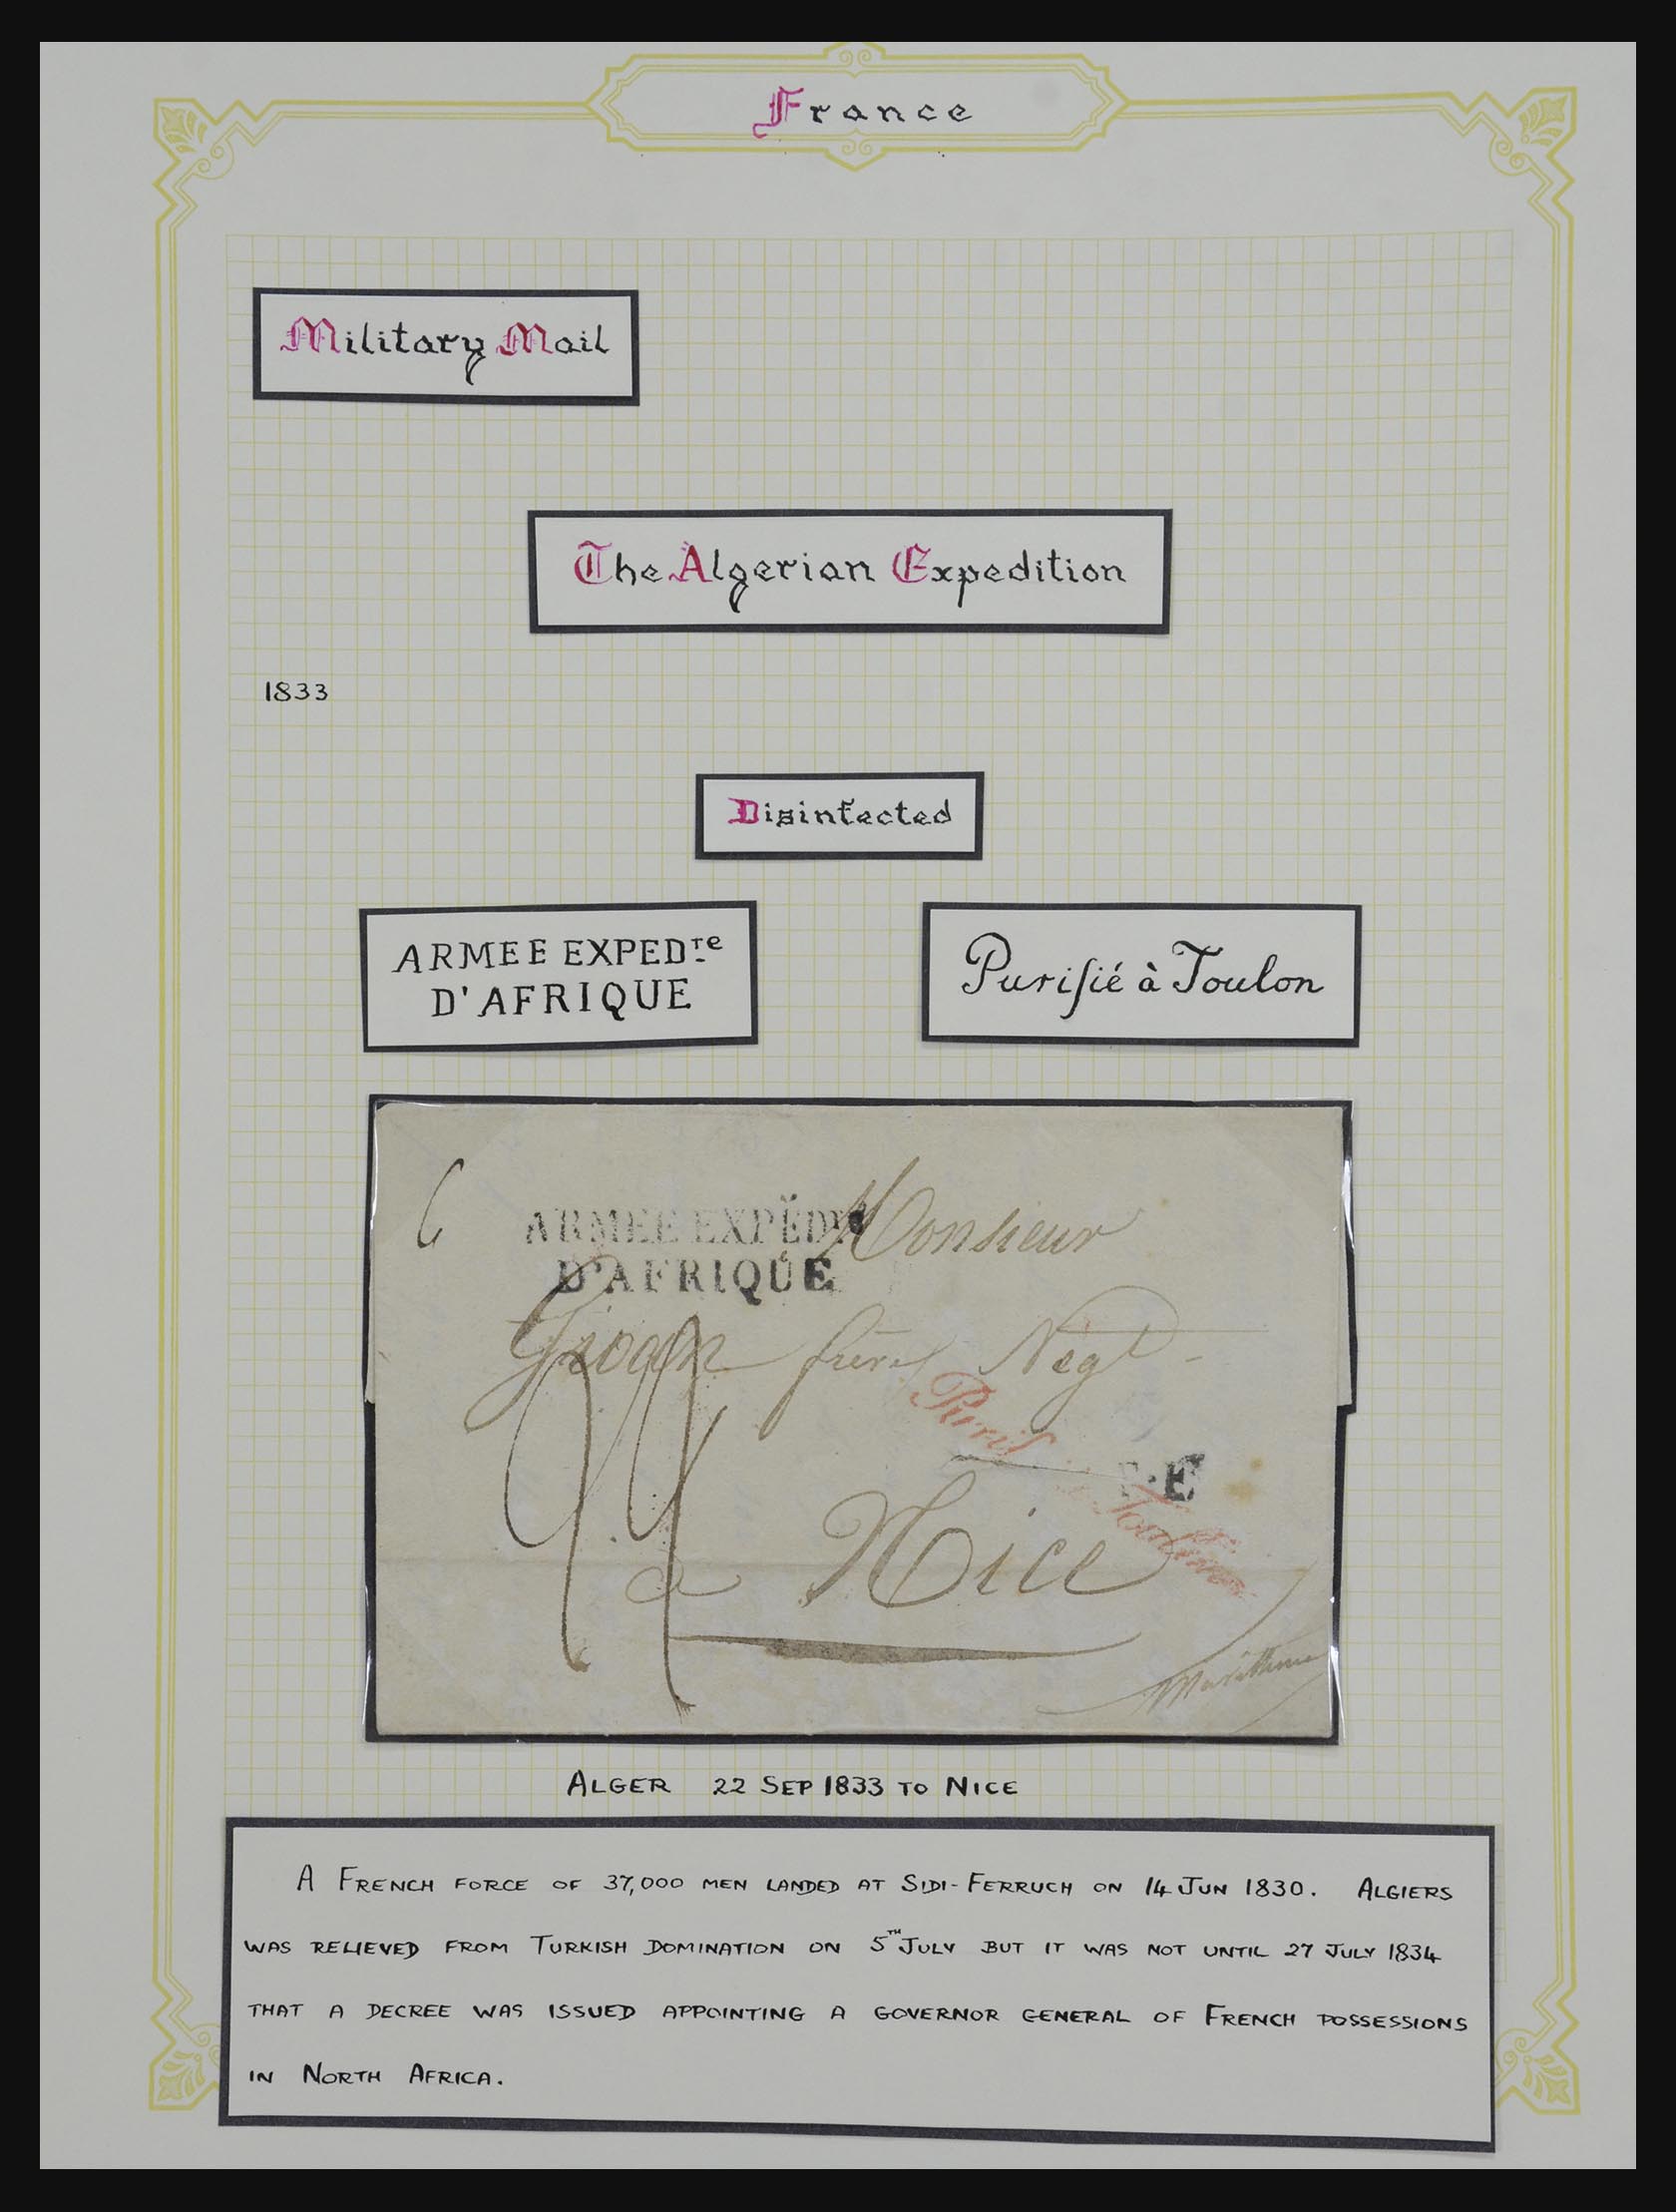 France
Military Mail
The Algerian Expedition
1833
Disinfected
ARMEE EXPEDre
D'AFRIQUE
Purifié à Toulon
6
ARMÉE EXPÉDre
D'AFRIQUE
Monsieur
frères Négt
Purif Toulon
E
à Nice
ALGER 22 SEP 1833 TO NICE
A FRENCH FORCE OF 37,000 MEN LANDED AT SIDI-FERRUCH ON 14 JUN 1830. ALGIERS
WAS RELIEVED FROM TURKISH DOMINATION ON 5TH JULY BUT IT WAS NOT UNTIL 27 JULY 1834
THAT A DECREE WAS ISSUED APPOINTING A GOVERNOR GENERAL OF FRENCH POSSESSIONS
IN NORTH AFRICA.